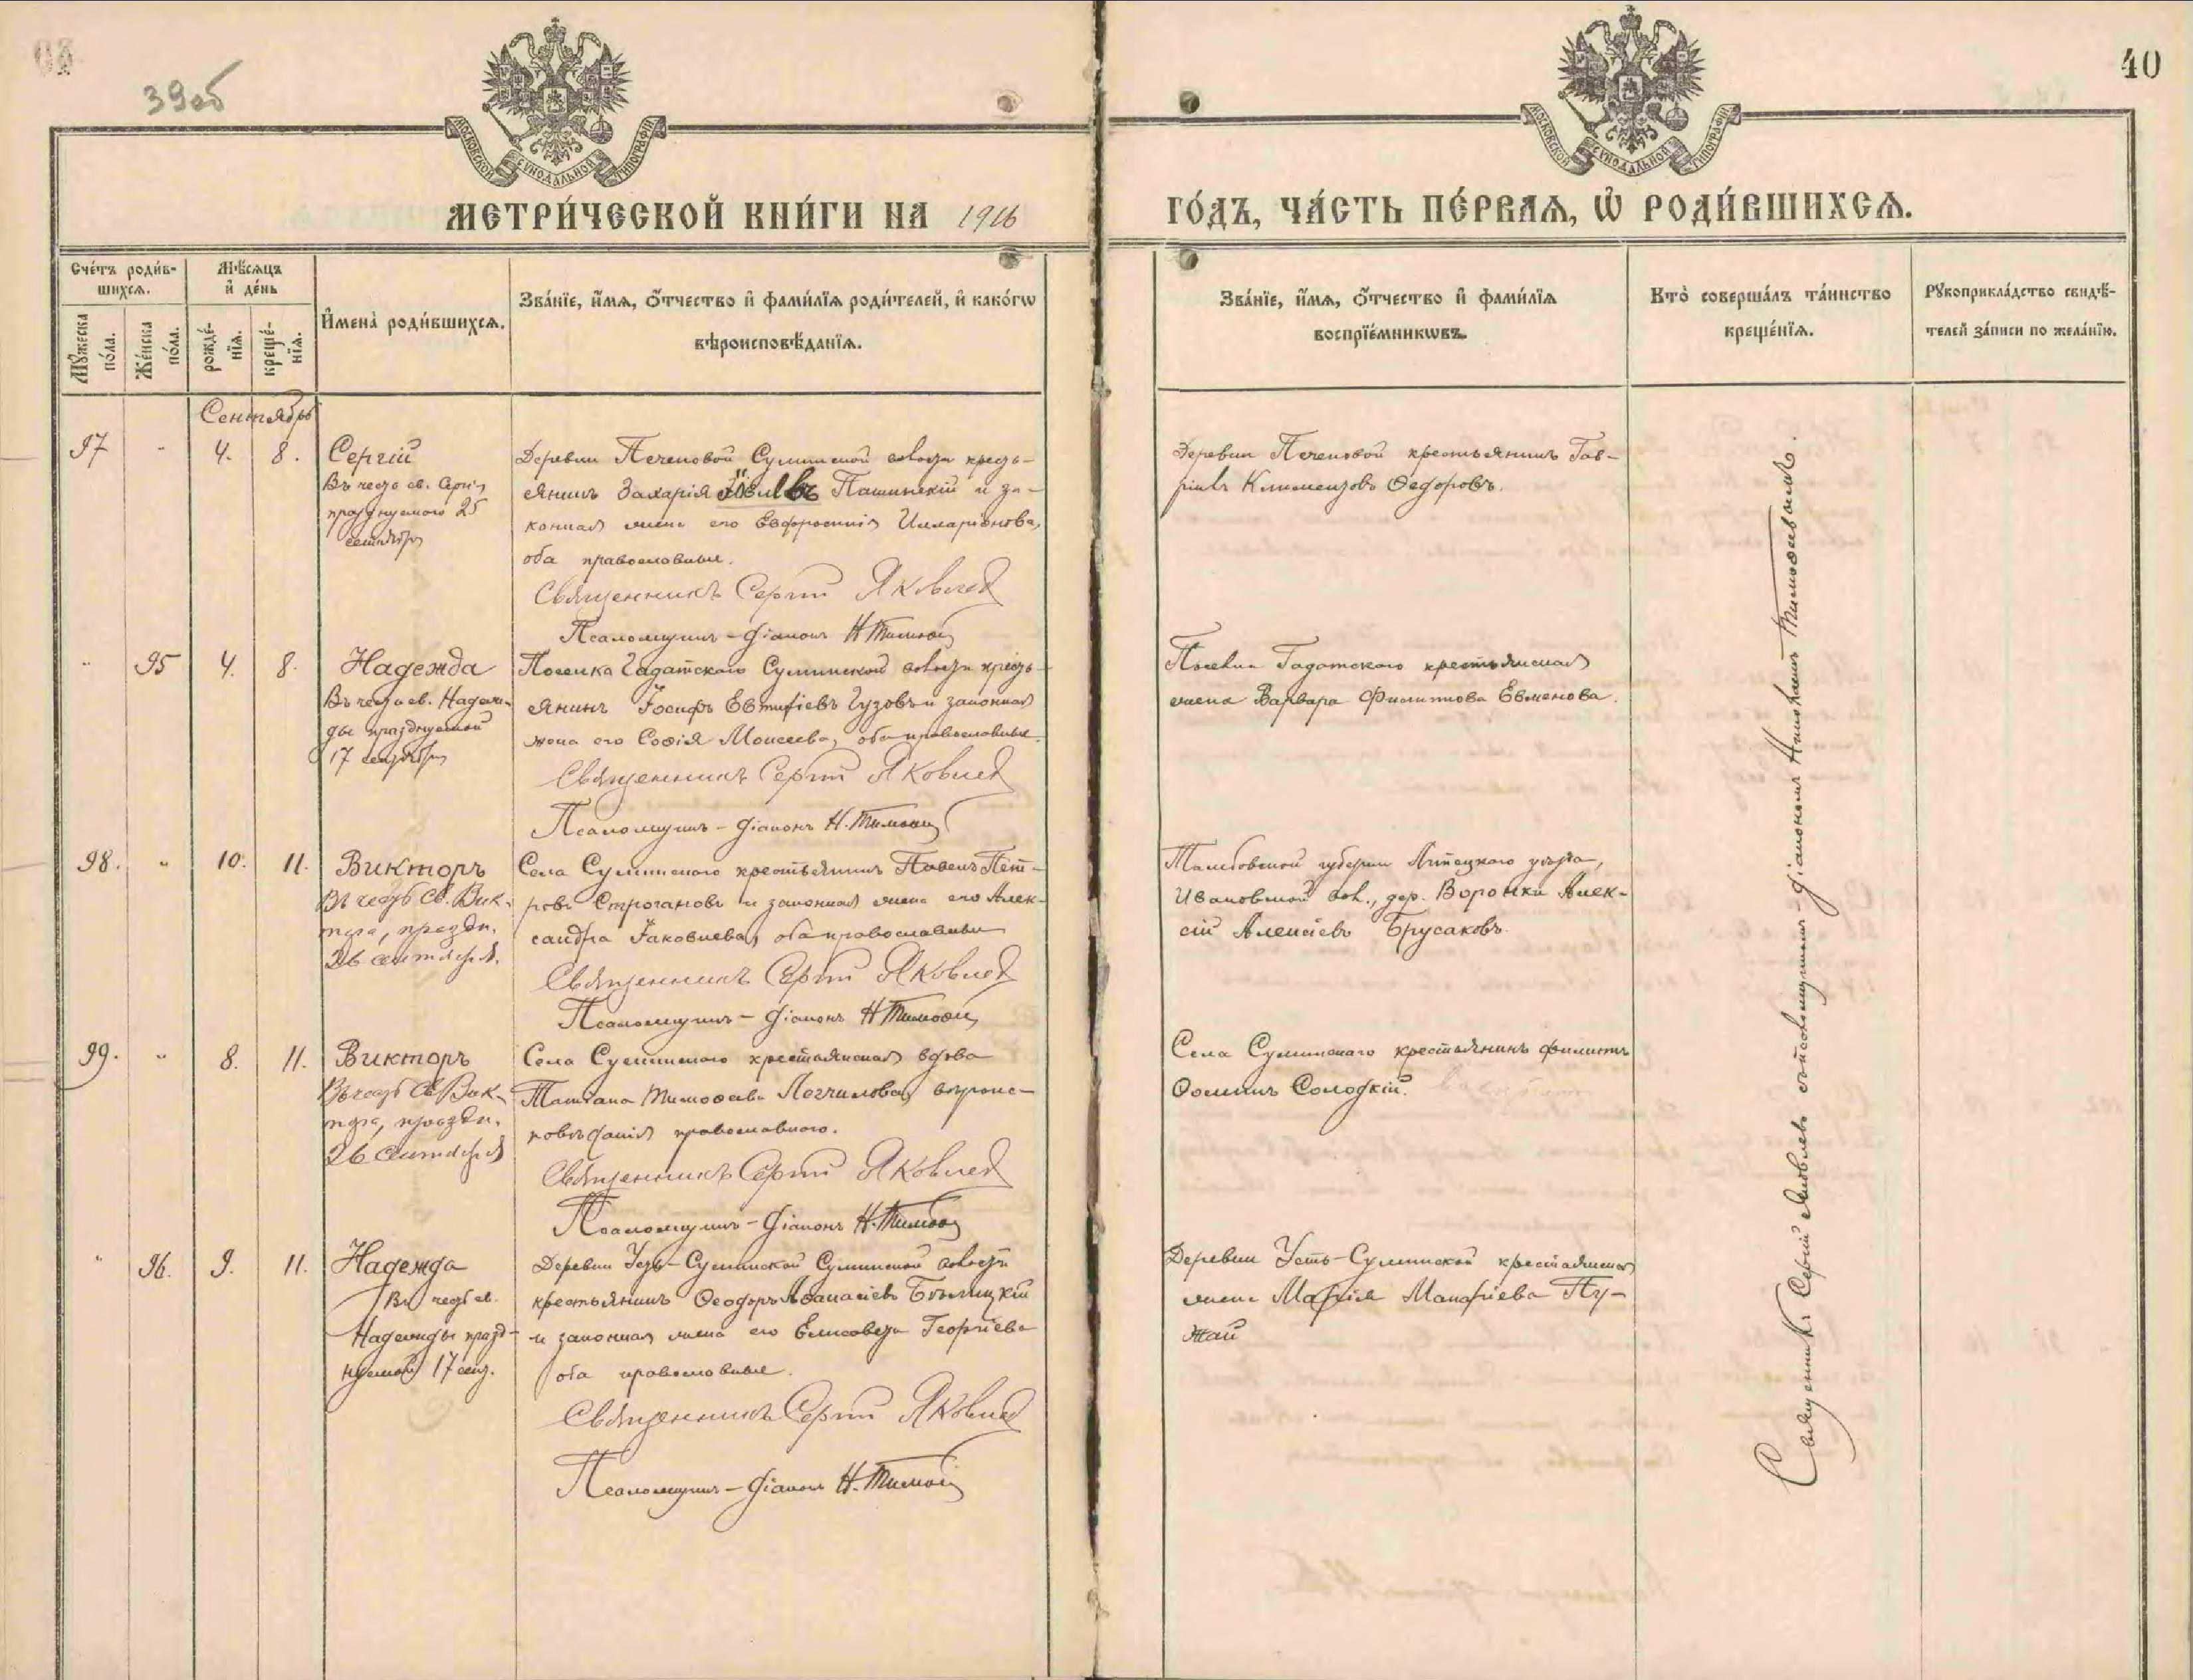 39об
40
МОСКОВСКОЙ СѴНОДАЛЬНОЙ ТИПОГРАФІИ
МОСКОВСКОЙ СѴНОДАЛЬНОЙ ТИПОГРАФІИ
МЕТРИ́ЧЕСКОЙ КНИ́ГИ НА 1916
ГО́ДЪ, ЧА́СТЬ ПЕ́РВАѦ, Ѽ РОДИ́ВШИХСѦ.
Сче́тъ роди́в-
шихсѧ.
Мꙋ́жеска по́ла.
Же́нска по́ла.
Мѣ́сѧцъ
и҆ де́нь
рожде́-
нїѧ.
креще́-
нїѧ.
И҆мена̀ роди́вшихсѧ.
Зва́нїе, и҆́мѧ, ѻ҆́тчество и҆ фами́лїѧ роди́телей, и҆ како́гѡ
вѣроисповѣ́данїѧ.
Зва́нїе, и҆́мѧ, ѻ҆́тчество и҆ фами́лїѧ
воспрїе́мникѡвъ.
Кто̀ соверша́лъ та́инство
креще́нїѧ.
Рꙋкоприкла́дство свидѣ́-
телей за́писи по жела́нїю.
Сентябрь
97 - 4. 8. Сергій
Въ честь св. Сергія
празднуемаго 25
сентября
Деревни Печеновой Сушинской волости кресть-
янинъ Захарія Пашинскій и за-
конная жена его Евфросинія Илларіонова,
оба православные.
Священникъ Сергій Яковлев
Псаломщикъ-діаконъ Н Тимофеев
Деревни Печеновой крестьянинъ Гав-
ріилъ Климентовъ Ѳедоровъ.
" 95 4. 8. Надежда
Въ честь св. Надеж-
ды празднуемой
17 сентября
Поселка Гадатскаго Сушинской волости кресть-
янинъ Іосифъ Евтифіевъ Гузовъ и законная
жена его Софія Моисеева, оба православные.
Священникъ Сергій Яковлев
Псаломщикъ-діаконъ Н. Тимофеев
Поселка Гадатскаго крестьянская
жена Варвара Филиппова Евменова.
98. " 10. 11. Викторъ
Въ честь Св. Вик-
тора, праздн.
26 сентября.
Села Сушинскаго крестьянинъ Павелъ Пет-
ровъ Строгановъ и законная жена его Алек-
сандра Іаковлева, оба православные
Священникъ Сергій Яковлев
Псаломщикъ-діаконъ Н Тимофеев
Тамбовской губерніи Липецкаго уѣзда,
Ивановской вол., дер. Воронки Алек-
сій Алексіевъ Брусаковъ.
99. " 8. 11. Викторъ
Въ честь Св Вик-
тора, праздн.
26 Сентября
Села Сушинскаго крестьянская вдова
Татіана Тимоѳеева Логчилова, вѣроис-
повѣданія православнаго.
Священникъ Сергій Яковлев
Псаломщикъ-діаконъ Н. Тимофеев
Села Сушинскаго крестьянинъ Филиппъ
Ѳоминъ Солодкій.
" 96. 9. 11. Надежда
Въ честь св.
Надежды празд-
нуемой 17 сент.
Деревни Усть-Сушинской Сушинской волости
крестьянинъ Ѳеодоръ Аѳанасіевъ Бѣлицкій
и законная жена его Елисавета Георгіева
оба православные.
Священникъ Сергій Яковлев
Псаломщикъ-діаконъ Н. Тимофеев
Деревни Усть-Сушинской крестьянская
жена Марія Макаріева Пу-
жай
Священникъ Сергій Яковлевъ съ псаломщикомъ-діакономъ Николаемъ Тимоѳеевымъ.